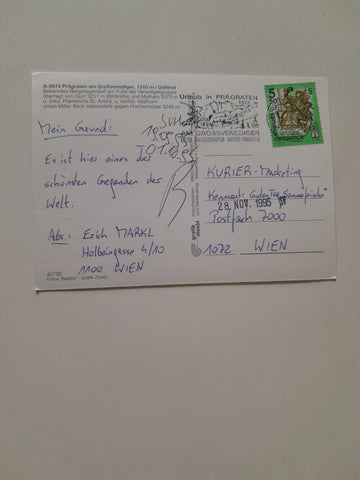 A-9974 Prägraten am Großvenediger, 1310 m / Osttirol
Bekanntes Bergsteigerdorf am Fuße der Venedigergruppe
überragt von Quirl 3251 m (Bildmitte) und Malham 3373 m
u. links, Pfarrkirche St. Andrä, u. rechts, Wallhorn
unten Mitte: Blick talauswärts gegen Hochschober 3240 m
Mein Grund:
Es ist hier eines der
schönsten Gegenden der
Welt.
Abs.: Erich MARKL
Holbeingasse 4/10
1100 WIEN
45700
Urlaub in PRÄGRATEN
1310 m
GROSSVENEDIGER
5
KURIER-Marketing
Kennwort: Guten Tag, Sommerfrische"
Postfach 7000
28. NOV. 1995
1072 WIEN
grafik
zloebl